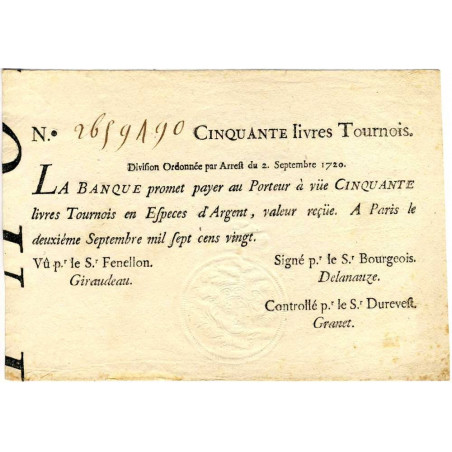 N.º 2659490 CINQUANTE livres Tournois.
Division Ordonnée par Arrest du 2. Septembre 1720.
LA BANQUE promet payer au Porteur à vüe CINQUANTE
livres Tournois en Especes d'Argent, valeur reçüe. A Paris le
deuxiéme Septembre mil sept cens vingt.
Vû p.r le S.r Fenellon.
Giraudeau.
Signé p.r le S.r Bourgeois.
Delanauze.
Controllé p.r le S.r Durevest.
Granet.